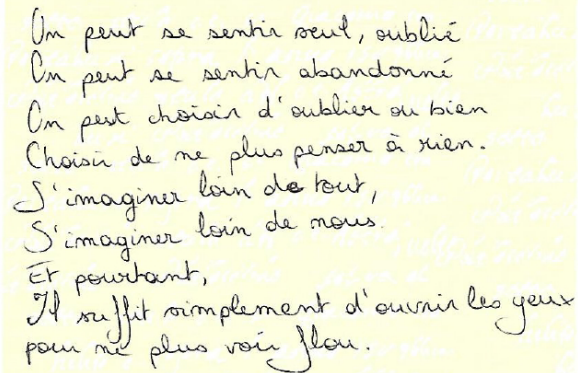 On peut se sentir seul, oublié
On peut se sentir abandonné
On peut choisir d'oublier ou bien
Choisir de ne plus penser à rien.
S'imaginer loin de tout,
S'imaginer loin de nous.
Et pourtant,
Il suffit simplement d'ouvrir les yeux
pour ne plus voir flou.